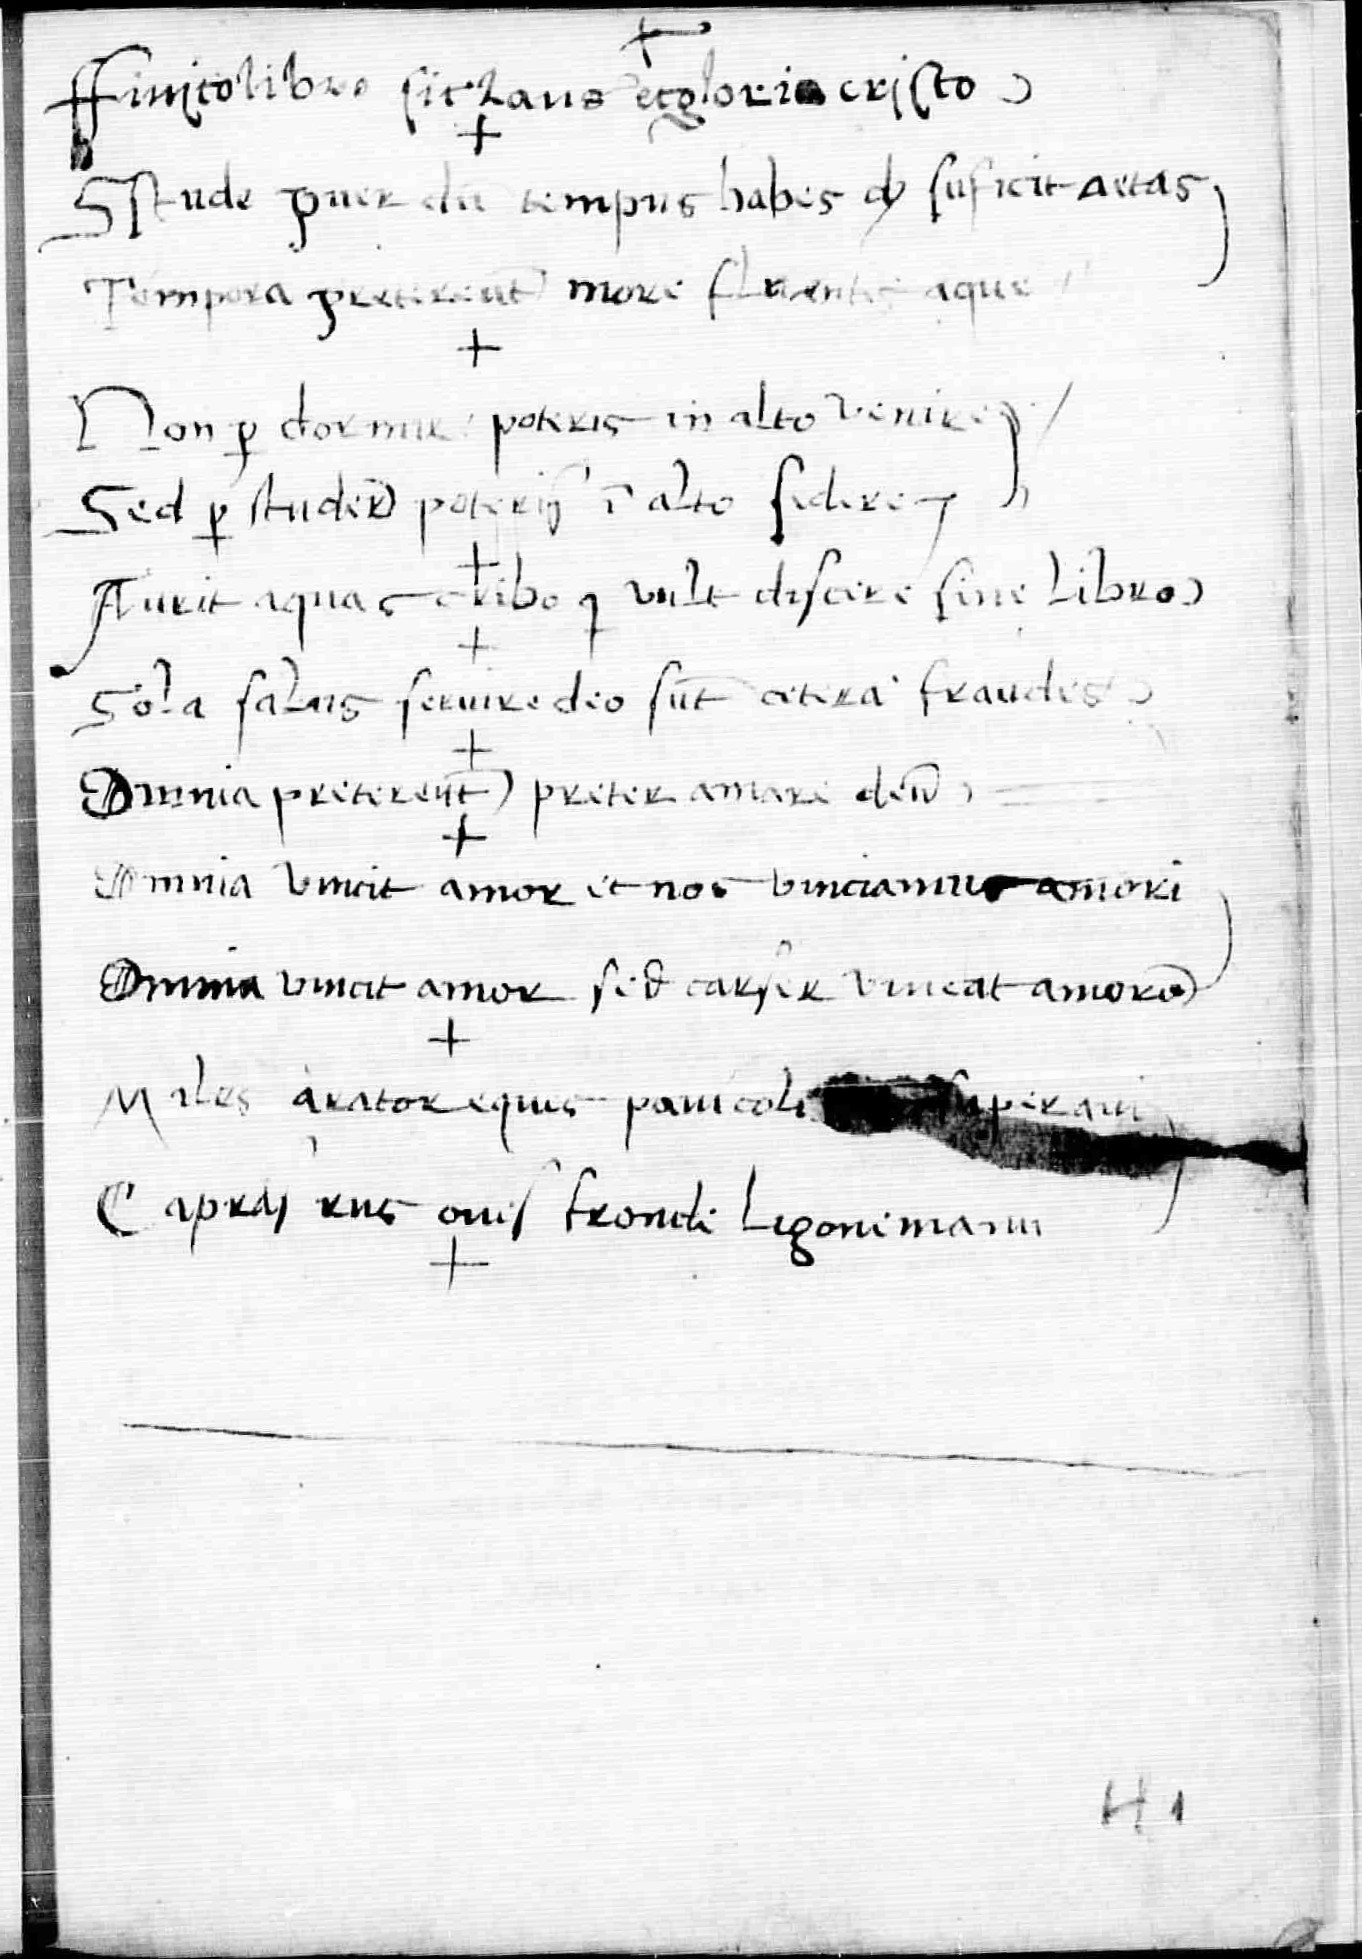 +
ffinito libro sit laus et gloria cristo
+
Sstude puer dū tempus habes sufficit aetas
Tempora pretereūt more fluentis aque
+
Non p dormire poteris in alto venire
Sed p studere poteris ī alto sedere
+
Aurit aquas cribo q vult discere sine libro
+
Sola salus servire deo sūt cetera fraudes
+
Omnia pretereūt preter amare deū
+
Omnia vincit amor et nos vinciamus amori
Omnia vincit amor sed carser vincat amorē
+
Miles arator eques pavi coli superavi
Capras rus ovis frondi ligoni manu
+
H 1